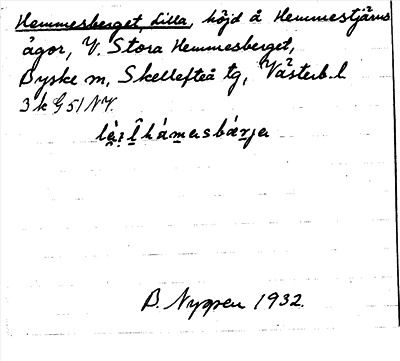 Hemmesberget, Lilla, höjd å Hemmestjärns
ägor, V. Stora Hemmesberget,
Byske sn, Skellefteå tg, Västerb. l
3 k G 51 NV.
B. Nygren 1932.